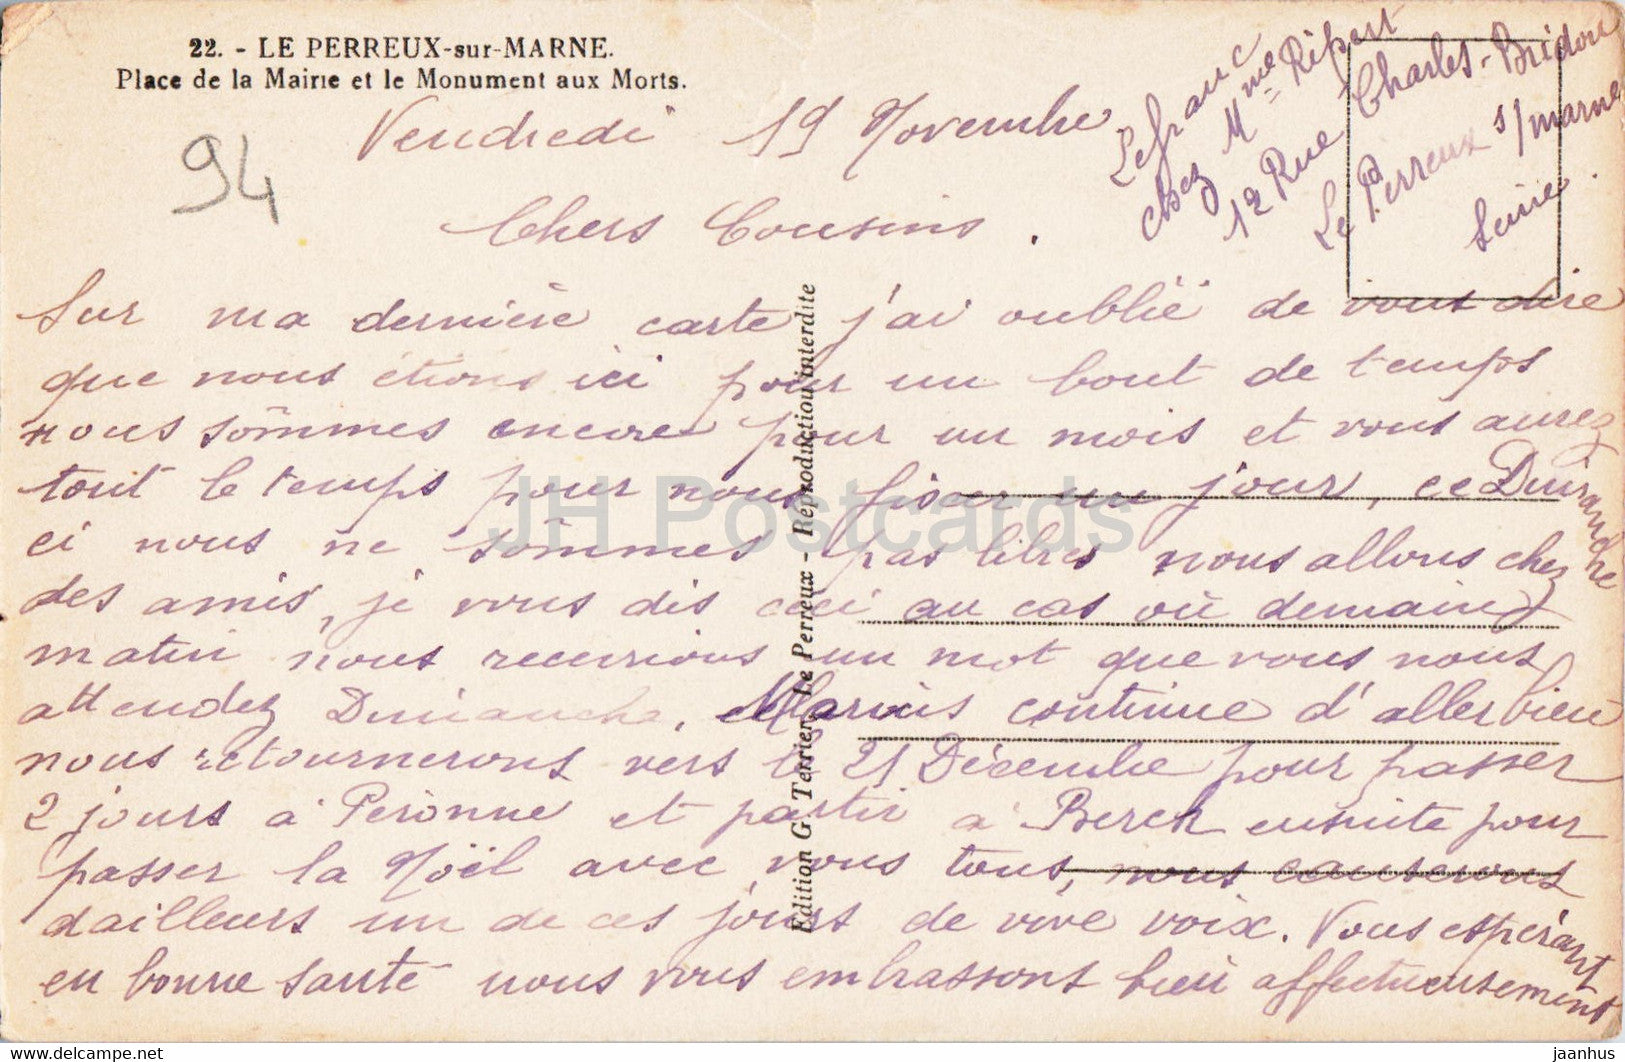 22. - LE PERREUX-sur-MARNE.
Place de la Mairie et le Monument aux Morts.
94
Lefranc
chez Mme Ripert
12 Rue Charles-Bridou
Le Perreux s/marne
Seine.
Vendredi 19 Novembre
Chers Cousins.
Sur ma dernière carte j'ai oublié de vous dire
que nous étions ici pour un bout de temps
nous sômmes encore pour un mois et vous aurez
tout le temps pour nous fixer un jour, ce Dimanche
ci nous ne sômmes pas libres nous allons chez
des amis, je vous dis ceci au cas où demain
matin nous recevrions un mot que vous nous
attendez Dimanche. Marius continue d'aller bien
nous retournerons vers le 21 Décembre pour passer
2 jours à Péronne et partir à Berck ensuite pour
passer la Noël avec vous tous, nous causerons
dailleurs un de ces jours de vive voix. Vous espérant
en bonne santé nous vous embrassons bien affectueusement
Edition G. Terrier, Le Perreux - Reproduction interdite
JH Postcards
hippostcard.com
jaanhus